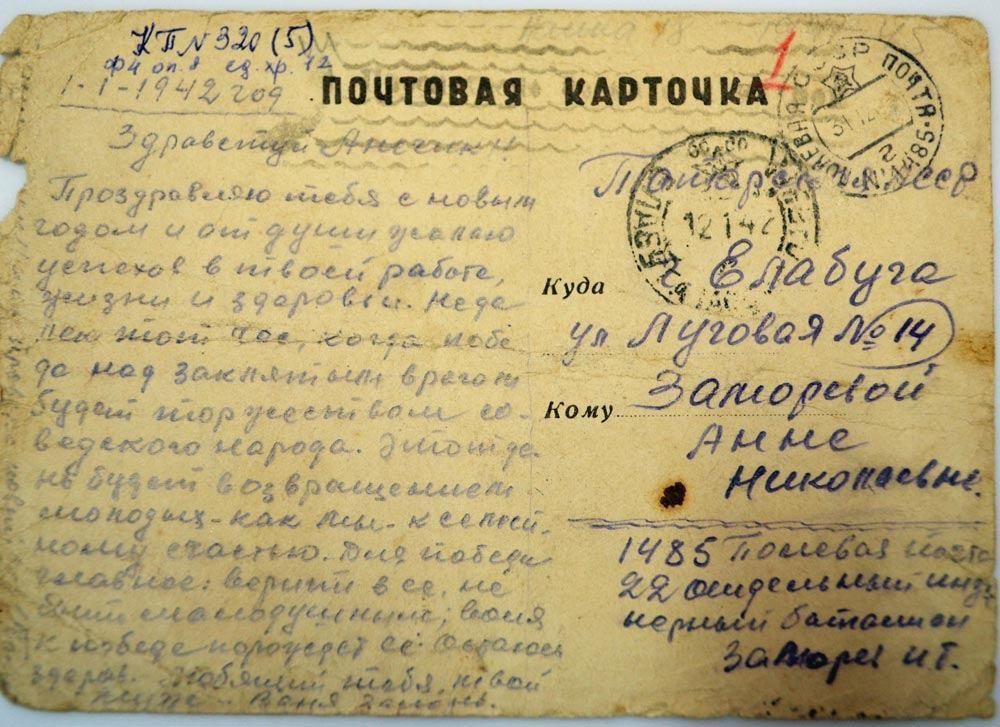 КП № 320 (5)
ф4 оп.я ед. хр. 12
1-1-1942 год
ПОЧТОВАЯ КАРТОЧКА
1
Здравствуй Анечик!
Проздравляю тебя с новым
годом и от души желаю
успехов в твоей работе,
жизни и здоровьи. Неда
лек тот час, когда побе
да над заклятым врагом
будет торжеством со-
ведского народа. Этот де
нь будет возвращением
молодых - как мы - к семей
ному счастью. Для победы
главное: верить в ее, не
быть малодушным; воля
к победе порождает ее. Остаюсь
здоров. Любящий тебя, твой
Ваня
СССР ПОЧТА
1485
31 12
12 1 42
Татарск
ССР
Куда Елабуга
ул Луговая № 14
Кому Заморевой
Анне
Николаевне.
1485 Полевая почта
22 отдельный инже
нерный баталион
Заморев И Г.